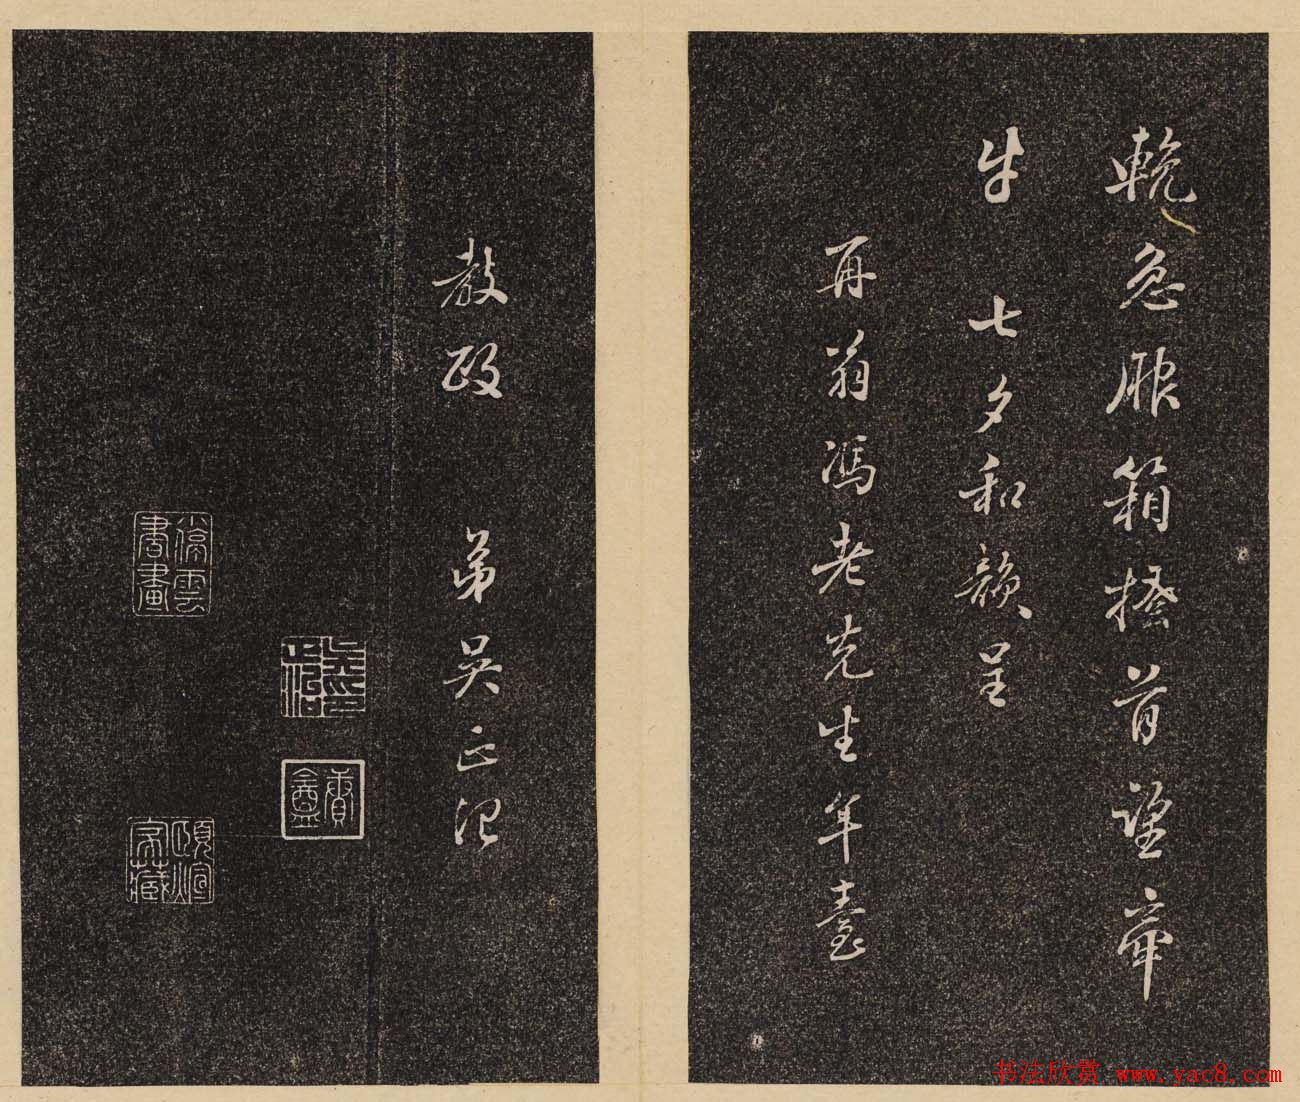 輓急服箱搔首望牽
牛 七夕和韻呈
再翁馮老先生年臺
教政 弟吳正治
吳印正治
停雲書畫
家藏
书法欣赏 www.yac8.com